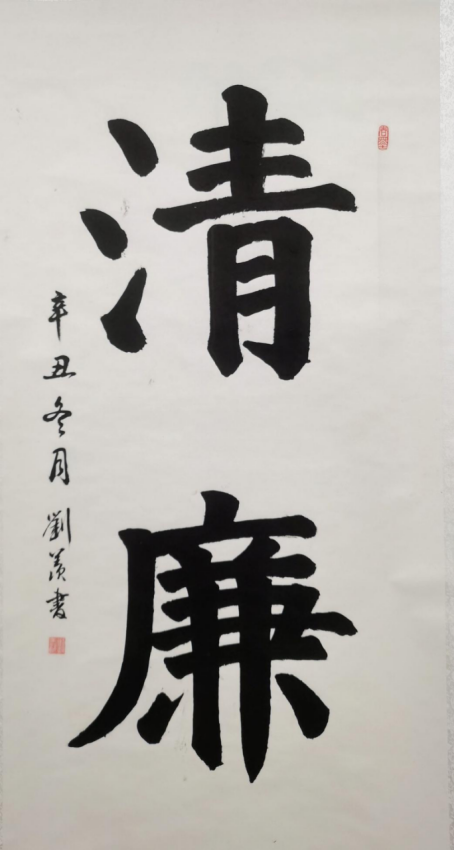 清廉
辛丑冬月劉羨書